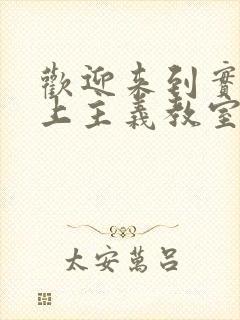 歡迎来到實
上主義教室
太安萬呂